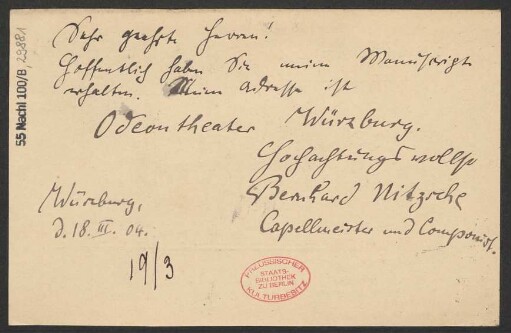 55 Nachl 100/B, 29881
Sehr geehrte Herren!
Hoffentlich haben Sie meine Manuscripte
erhalten. Meine Adresse ist
Odeontheater Würzburg.
Hochachtungsvollst
Bernhard Nitzsche
Capellmeister und Componist.
Würzburg,
d. 18. III. 04.
19/3
PREUSSISCHER
STAATS-
BIBLIOTHEK
ZU BERLIN
KULTURBESITZ